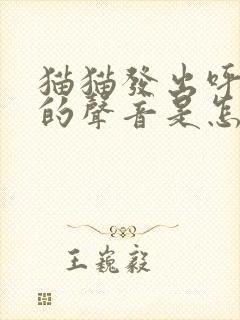 猫猫發出呼
的聲音是怎
王巍毅